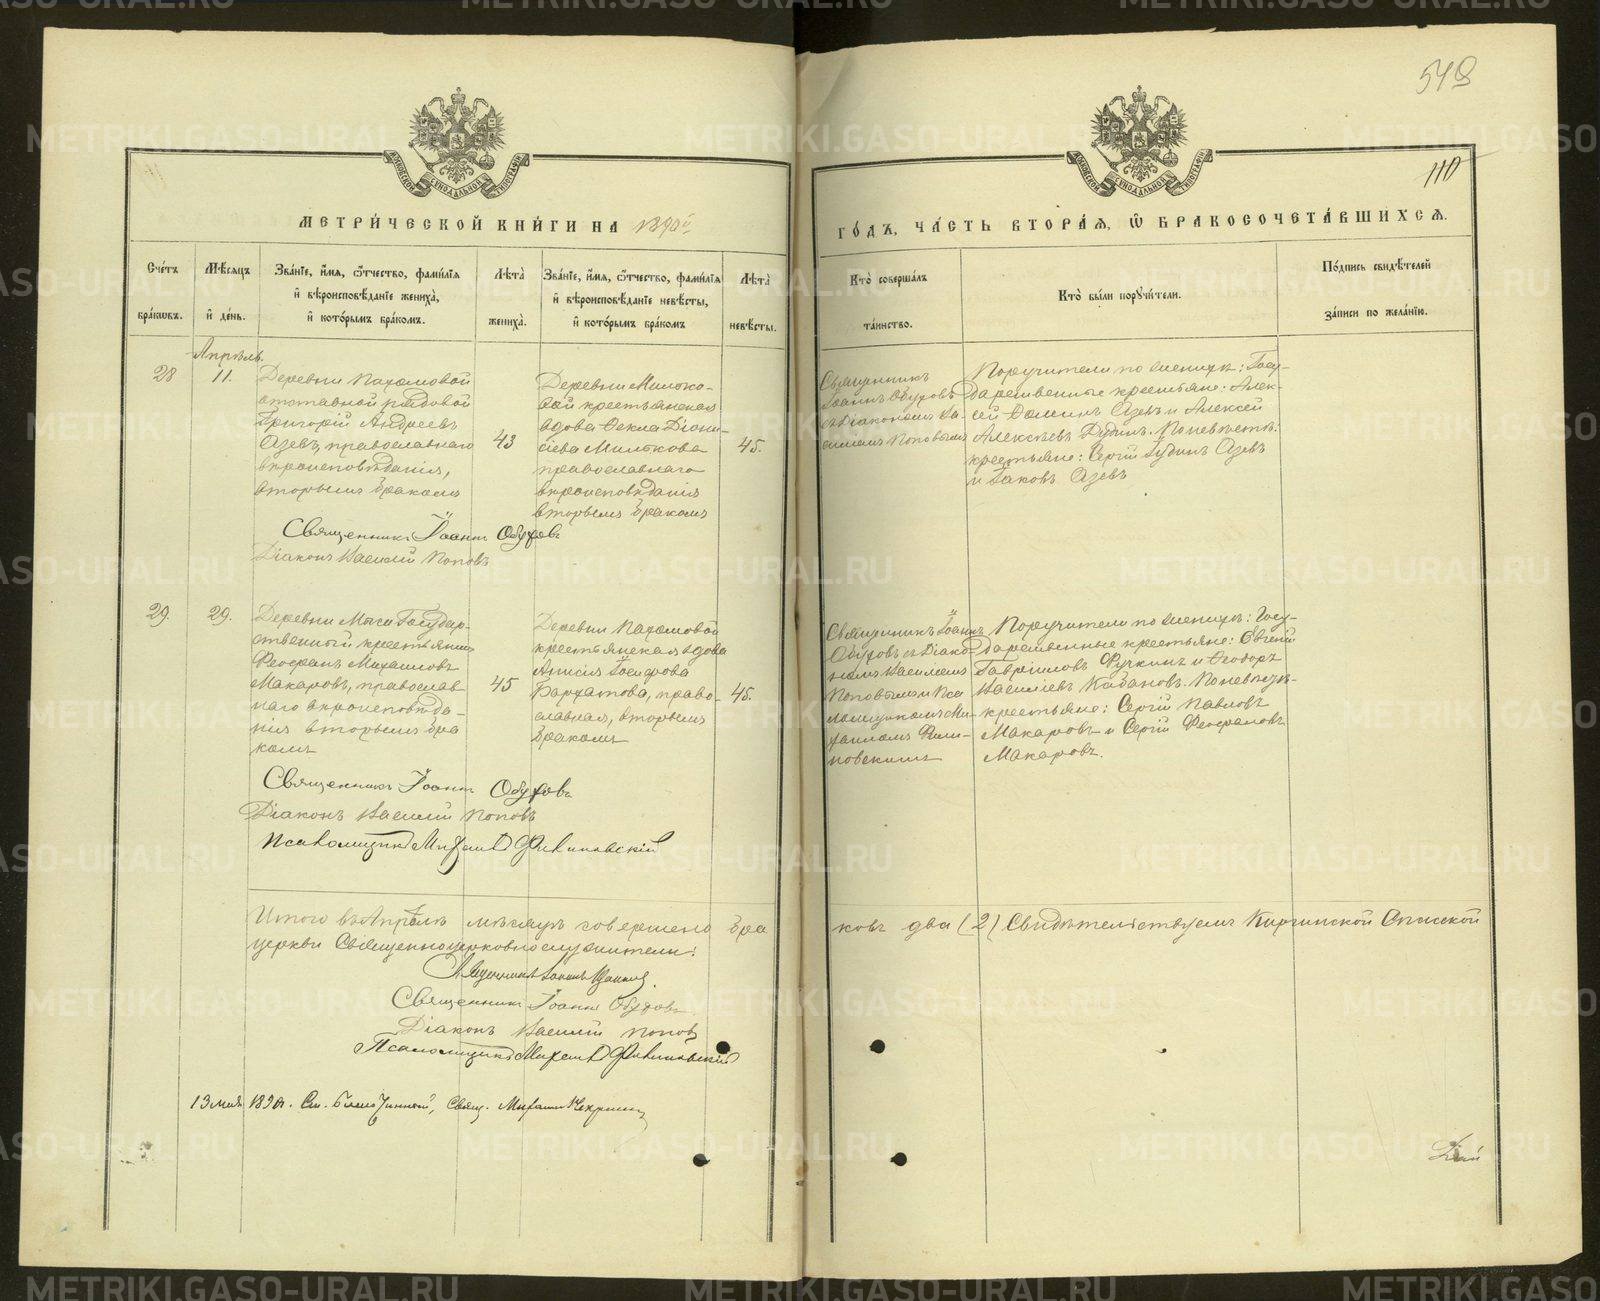 548
110
МОСКОВСКОЙ СѴНОДАЛЬНОЙ ТИПОГРАФІИ
МОСКОВСКОЙ СѴНОДАЛЬНОЙ ТИПОГРАФІИ
МЕТРИ́ЧЕСКОЙ КНИ́ГИ НА 1890й
ГО́ДЪ, ЧА́СТЬ ВТОРА́Я, Ѡ҆ БРАКОСОЧЕТА́ВШИХСЯ.
Сче́тъ бра́кѡвъ.
Мѣ́сяцъ и҆ де́нь.
Зва́нїе, и҆́мя, ѻ҆́тчество, фами́лїя
и҆ вѣроисповѣ́данїе жениха̀,
и҆ кото́рымъ бра́комъ.
Лѣта̀ жениха̀.
Зва́нїе, и҆́мя, ѻ҆́тчество, фами́лїя
и҆ вѣроисповѣ́данїе невѣ́сты,
и҆ кото́рымъ бра́комъ
Лѣта̀ невѣ́сты.
Кто̀ соверша́лъ
та́инство.
Кто̀ бы́ли порꙋчи́тели.
По́дпись свидѣ́телей
за́писи по жела́нїю.
Апрѣль.
28
11.
Деревни Пахомовой
отставной рядовой
Григорій Андреевъ
Азевъ, православнаго
вѣроисповѣданія,
вторымъ бракомъ
43
Деревни Милько-
вой крестьянская
вдова Ѳекла Діони-
сіева Милькова
православнаго
вѣроисповѣданія
вторымъ бракомъ
45.
Священникъ
Іоаннъ Обуховъ
съ Діакономъ Ва-
силіемъ Поповымъ
Поручители по женихѣ: Госу-
дарственные крестьяне: Алек-
сѣй Ѳоминъ Азевъ и Алексѣй
Алексѣевъ Дудинъ. По невѣстѣ:
крестьяне: Сергій Іудинъ Азевъ
и Іаковъ Азевъ
Священникъ Іоаннъ Обуховъ
Діаконъ Василій Поповъ
29.
29.
Деревни Мыса Государ-
ственный крестьянинъ
Феофанъ Михаиловъ
Макаровъ, православ
наго вѣроисповѣда-
нія вторымъ бра
комъ
45
Деревни Пахомовой
крестьянская вдова
Анисія Іосифова
Бархатова, право-
славная, вторымъ
бракомъ
45.
Священникъ Іоаннъ
Обуховъ съ Діако-
номъ Василіемъ
Поповымъ и Пса
ломщикомъ Ми-
хаиломъ Фили-
новскимъ
Поручители по женихѣ: Госу-
дарственные крестьяне: Евгеній
Гавріиловъ Фучкинъ и Ѳеодоръ
Василіевъ Кабановъ. По невѣстѣ-
крестьяне: Сергій Павловъ
Макаровъ и Сергій Феофановъ
Макаровъ.
Священникъ Іоаннъ Обуховъ
Діаконъ Василій Поповъ
Псаломщикъ Михаилъ Филиновскій
Итого въ Апрѣлѣ мѣсяцѣ совершено бра
ковъ два (2) Свидѣтельствуемъ Киргинской Спасской
церкви Священноцерковнослужители:
Священникъ Іоаннъ
Священникъ Іоаннъ Обуховъ
Діаконъ Василій Поповъ
Псаломщикъ Михаилъ Филиновскій
13 мая 1890. См. Благочинной, Свящ. Михаилъ
Май
METRIKI.GASO-URAL.RU